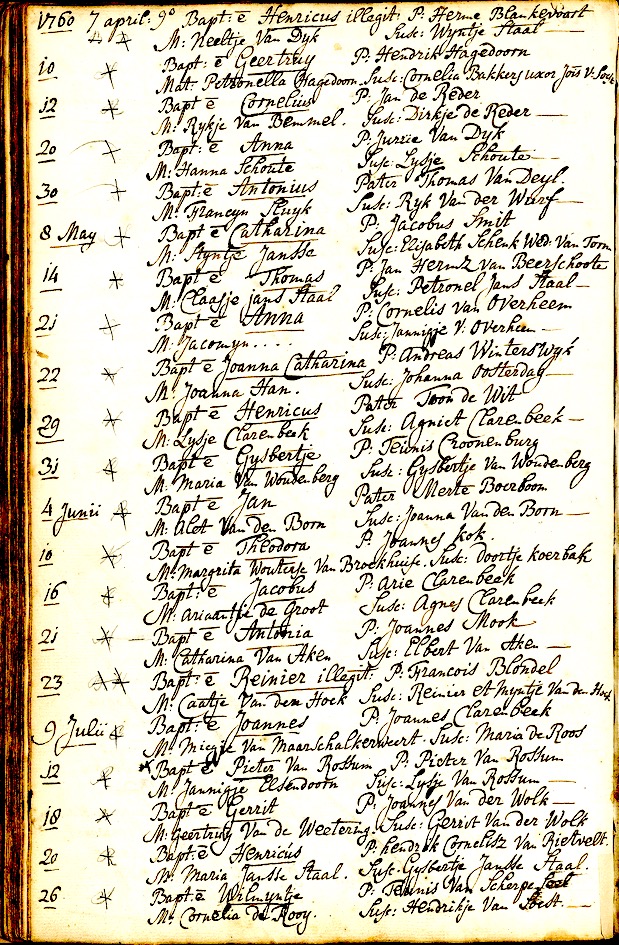 1760 7 april: 9º Bapt: ē Henricus illegit: P: Herme Blankevoort
M: Neeltje Van Dyk Susc: Wyntje Staal —
10 Bapt: ē Geertruy P: Hendrik Hagedoorn
Mat: Petronella Hagedoorn. Susc: Cornelia Bakkers uxor Joĩs V:
12 Bapt ē Cornelius P: Jan de Reder
M: Rykje Van Bemmel. Susc: Dirkje de Reder —
20 Bapt: ē Anna P: Jurrie Van Dyk
M: Hanna Schoute Susc: Lysje Schoute —
30 Bapt: ē Antonius Pater Thomas Van Deyl
M: Francyn Sluyk Susc: Ryk Van der Wurf —
8 May Bapt ē Catharina P: Jacobus Smit
M: Styntje Jansse Susc: Elisabeth Schenk Wed: Van Toorn
14 Bapt ē Thomas P: Jan Hermsz van Beerschoote
M: Claasje Jans Staal Susc: Petronel Jans Staal —
21 Bapt ē Anna P: Cornelis van Overheem
M: Jacomyn .... Susc: Jannigje V: Overheem —
22 Bapt ē Joanna Catharina P: Andreas Winterswyk
M: Joanna Han. Susc: Johanna Oosterdag —
29 Bapt ē Henricus Pater Toon de Wit
M: Lysje Clarenbeek Susc: Agniet Clarenbeek —
31 Bapt ē Gysbertje P: Teunis Croonenburg
M: Maria Van Woudenberg Susc: Gysbertje Van Woudenberg
4 Junii Bapt ē Jan Pater Merte Boerboom
M: Alet Van den Born Susc: Joanna Van den Born —
10 Bapt ē Theodora P: Joannes Kok.
M: Margrita Wouterse Van Broekhuise. Susc: Doortje Koerbak
16 Bapt: ē Jacobus P: Arie Clarenbeek
M: Ariaantje de Groot Susc: Agnes Clarenbeek
21 Bapt ē Antonia P: Joannes Mook
M: Catharina Van Aken Susc: Elbert Van Aken —
23 Bapt ē Reinier illegit: P: Francois Blondel
M: Caatje Van dem Hoek Susc: Reinier et Myntje Van den Hoek
9 Julii Bapt: ē Joannes P: Joannes Clarenbeek
M: Miesje Van Maarschalkerweert. Susc: Maria de Roos
12 Bapt ē Pieter Van Rossum P: Pieter Van Rossum
M: Jannigje Elsendoorn Susc: Lysje Van Rossum —
18 Bapt ē Gerrit P: Joannes Van der Wolk —
M: Geertruy Van de Weetering. Susc: Gerrit Van der Wolk
20 Bapt: ē Henricus P: hendrik Cornelisz Van Rietvelt.
M: Maria Jansse Staal. Susc: Gysbertje Jansse Staal.
26 Bapt: ē Wilmyntje P: Teunis Van Scherpe
M: Cornelia de Rooy. Susc: Hendrikje Van Soest —